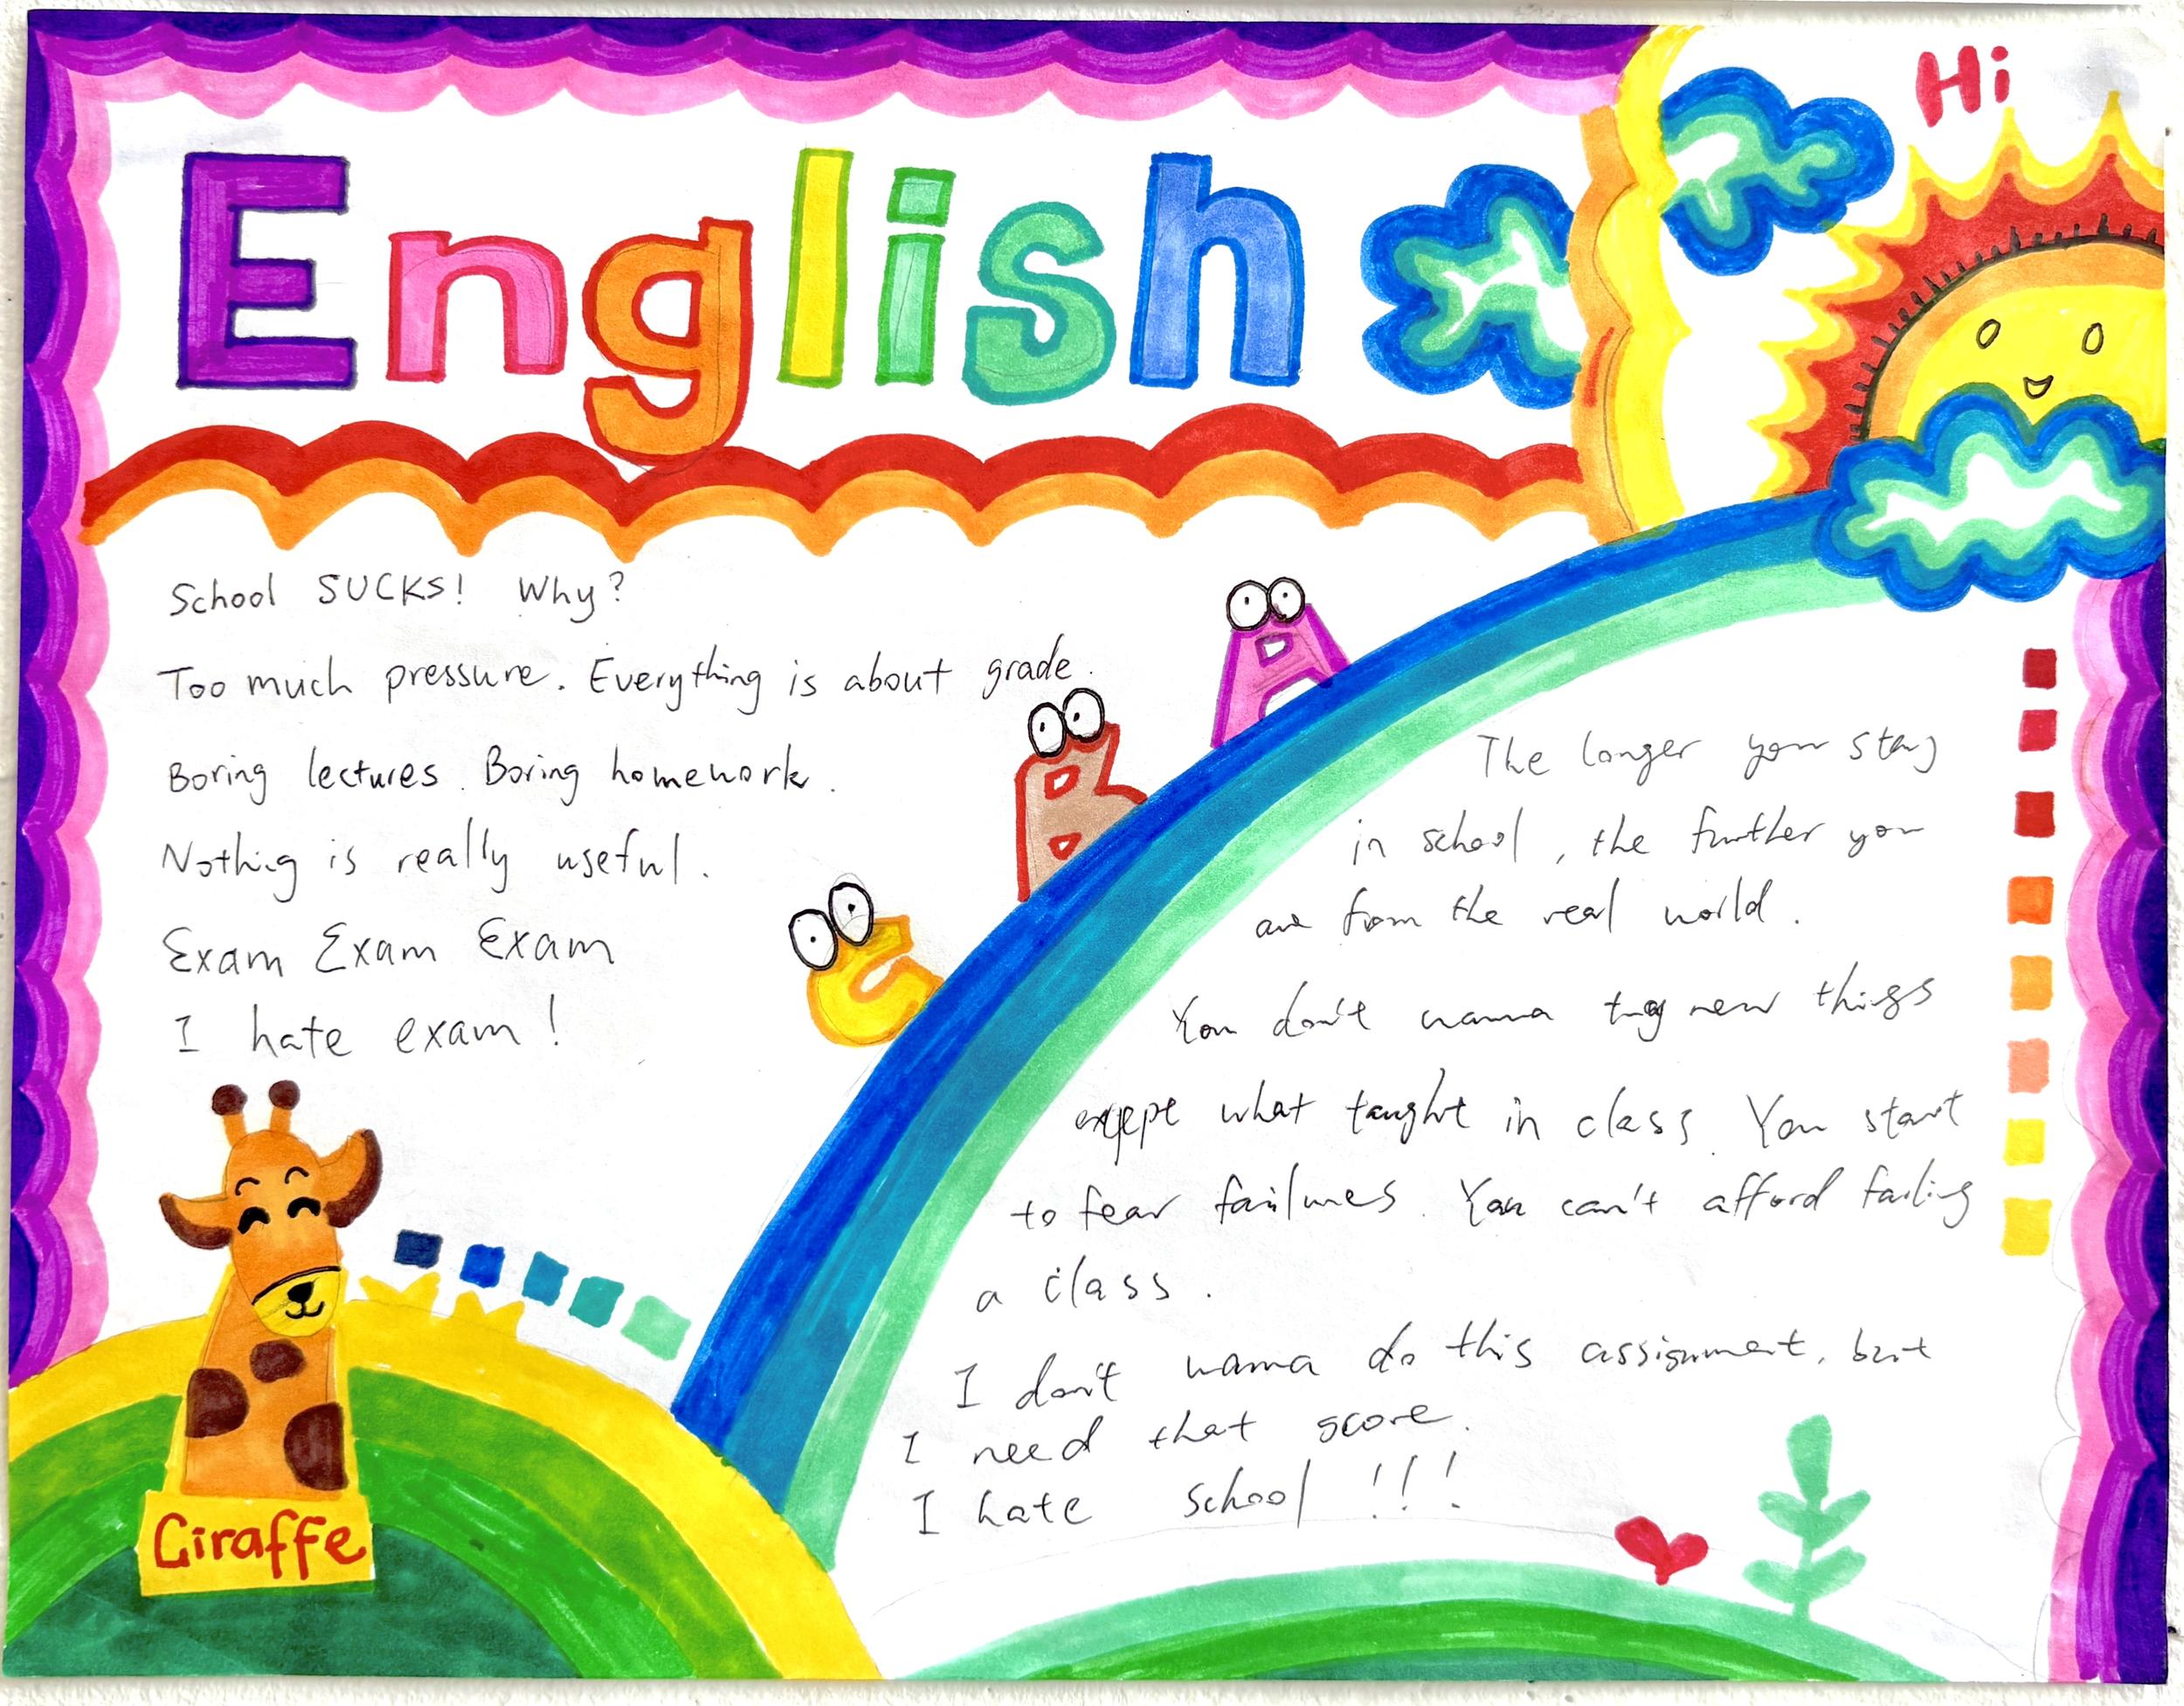 Hi
English
School SUCKS! Why?
Too much pressure. Everything is about grade.
Boring lectures. Boring homework.
Nothig is really useful.
Exam Exam Exam
I hate exam!
A
B
C
The longer you stay
in school, the further you
are from the real world.
You don't wanna try new things
except what taught in class. You start
to fear failures. You can't afford failing
a class.
I don't wanna do this assignment, but
I need that score.
I hate school !!!
Giraffe